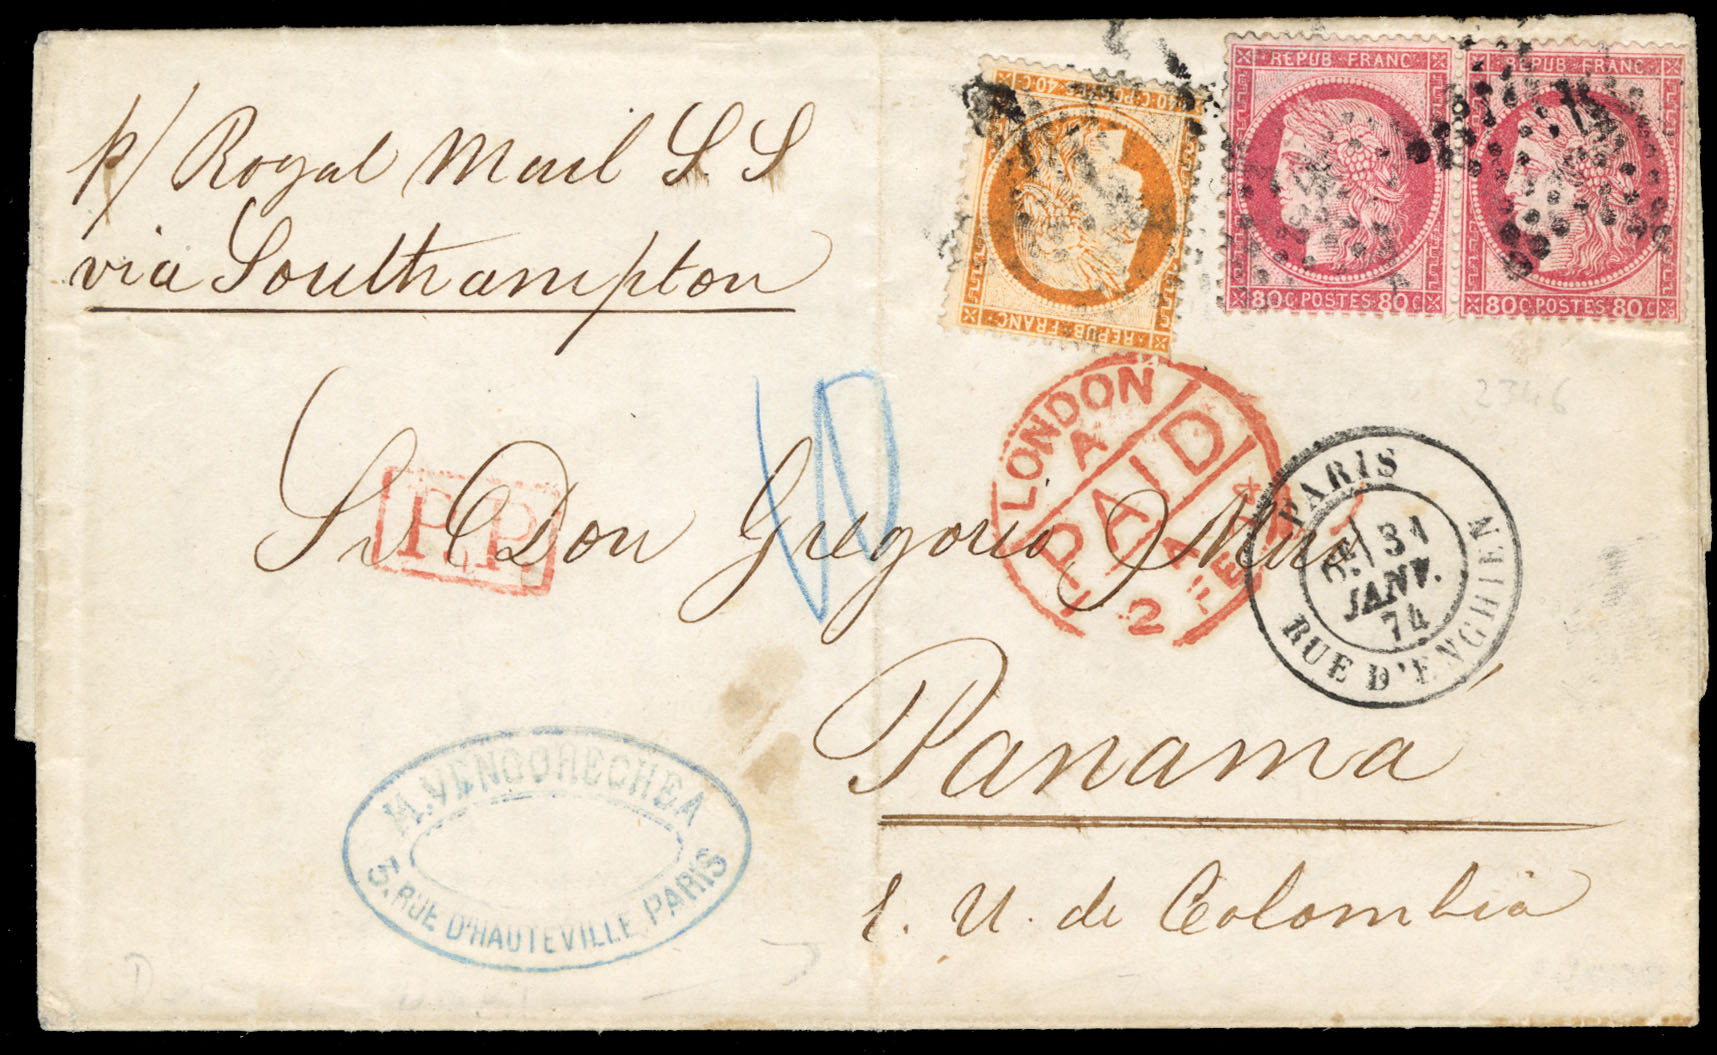 p/ Royal Mail S.S
via Southampton
40·C·POSTES·40·C
REPUB·FRANC·
REPUB·FRANC·
80C·POSTES·80C
REPUB·FRANC·
80C·POSTES·80C
2346
LONDON
A
PAID
2 FEB 74
PARIS
31
JANV.
74
RUE D'ENGHIEN
P.P.
10
Sr Don Gregorio Miro
Panamá
E. U. de Colombia
M. VENGOHECHEA
5, RUE D'HAUTEVILLE, PARIS